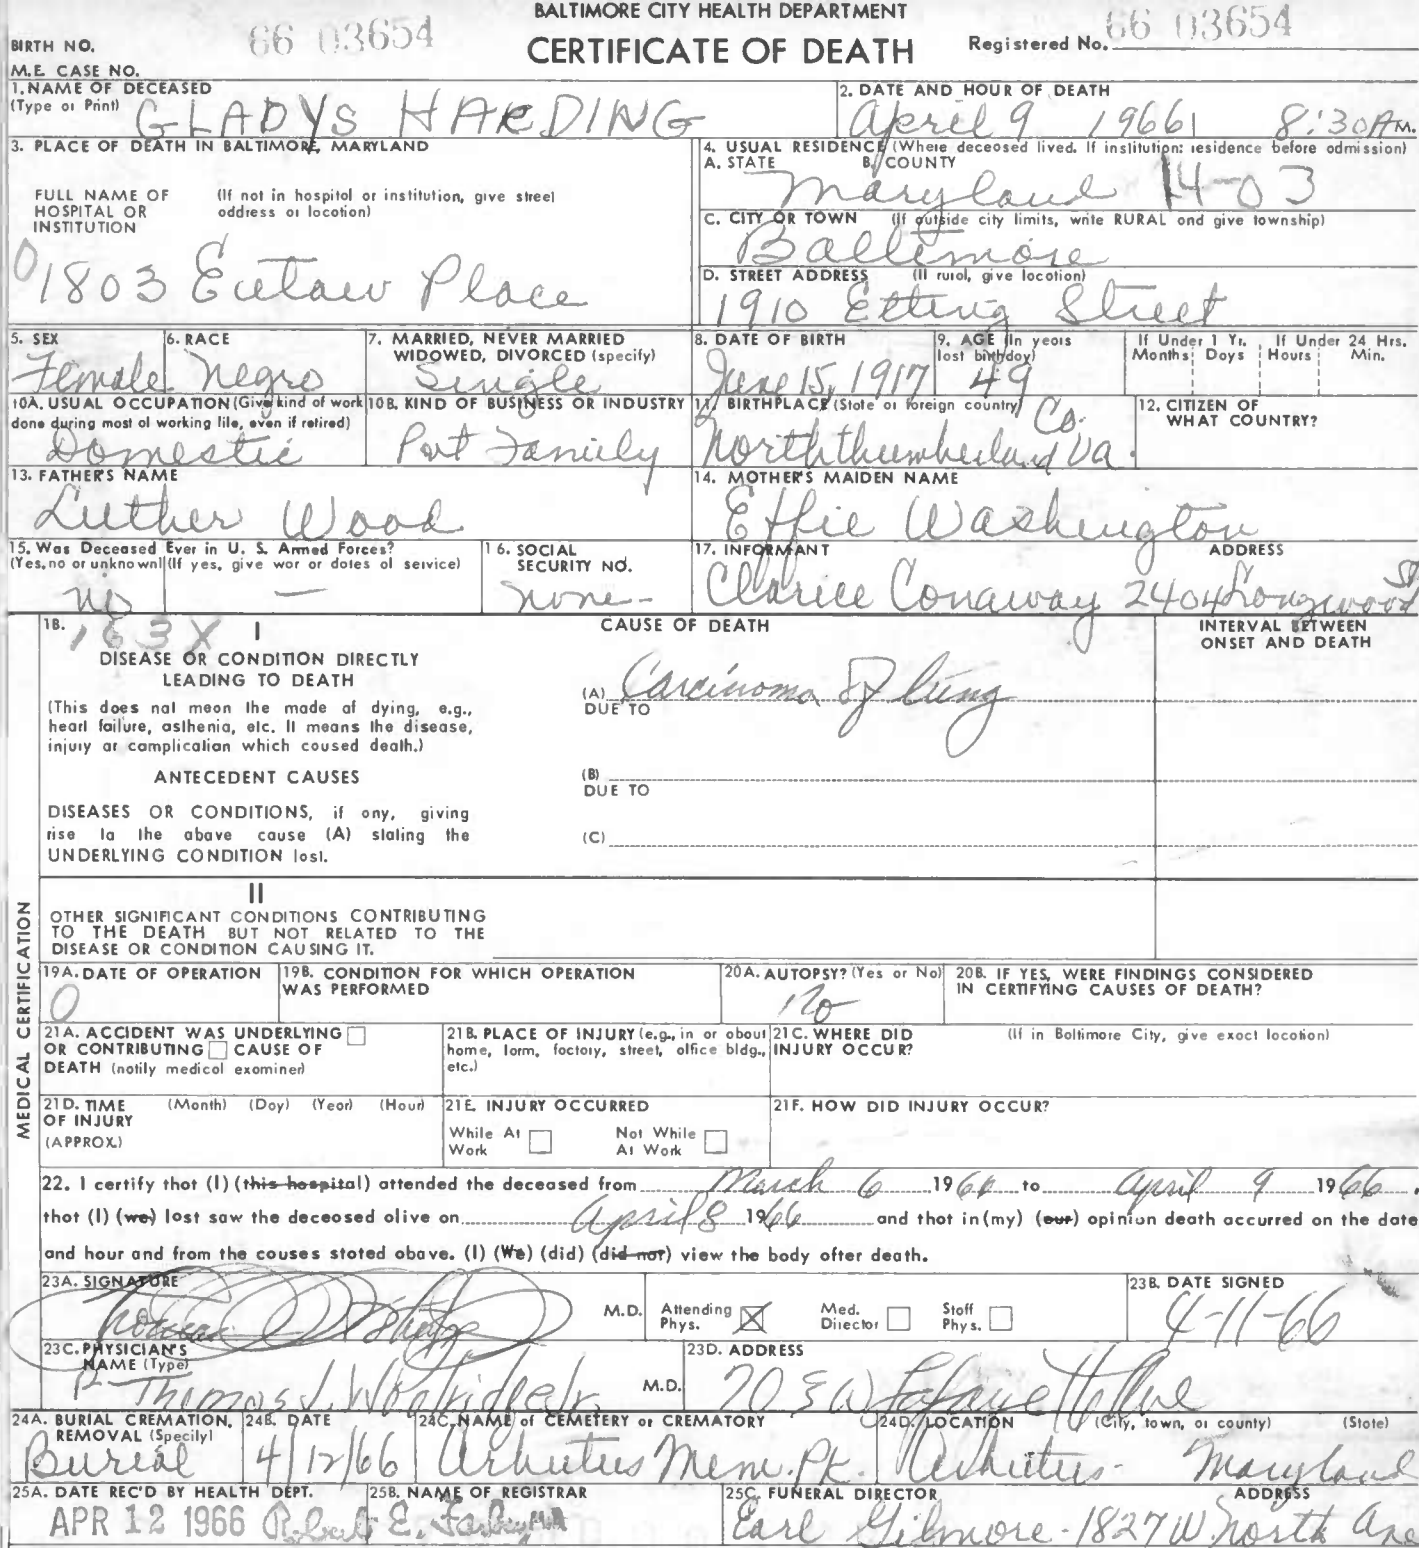 BALTIMORE CITY HEALTH DEPARTMENT
BIRTH NO. 66 03654 CERTIFICATE OF DEATH Registered No. 66 03654
M.E. CASE NO.
1. NAME OF DECEASED
(Type or Print) GLADYS HARDING
2. DATE AND HOUR OF DEATH
April 9 1966 8:30 A M.
3. PLACE OF DEATH IN BALTIMORE, MARYLAND
FULL NAME OF HOSPITAL OR INSTITUTION
(If not in hospital or institution, give street address or location)
1803 Eutaw Place
4. USUAL RESIDENCE (Where deceased lived. If institution: residence before admission)
A. STATE B. COUNTY
Maryland 14-03
C. CITY OR TOWN (If outside city limits, write RURAL and give township)
Baltimore
D. STREET ADDRESS (If rural, give location)
1910 Etting Street
5. SEX
Female
6. RACE
Negro
7. MARRIED, NEVER MARRIED
WIDOWED, DIVORCED (specify)
Single
8. DATE OF BIRTH
June 15, 1917
9. AGE (In years
last birthday)
49
If Under 1 Yr. If Under 24 Hrs.
Months Days Hours Min.
10A. USUAL OCCUPATION (Give kind of work
done during most of working life, even if retired)
Domestic
10B. KIND OF BUSINESS OR INDUSTRY
Pvt Family
11. BIRTHPLACE (State or foreign country)
Norththumberland Co. Va.
12. CITIZEN OF
WHAT COUNTRY?
13. FATHER'S NAME
Luther Wood
14. MOTHER'S MAIDEN NAME
Effie Washington
15. Was Deceased Ever in U. S. Armed Forces?
(Yes, no or unknown) (If yes, give war or dates of service)
no —
16. SOCIAL
SECURITY NO.
none-
17. INFORMANT ADDRESS
Clarice Conaway 2404 Longwood St
18. 163X I CAUSE OF DEATH INTERVAL BETWEEN
ONSET AND DEATH
DISEASE OR CONDITION DIRECTLY
LEADING TO DEATH
(This does not mean the mode of dying, e.g.,
heart failure, asthenia, etc. It means the disease,
injury or complication which caused death.)
(A) Carcinoma of lung
DUE TO
ANTECEDENT CAUSES
(B)
DUE TO
DISEASES OR CONDITIONS, if any, giving
rise to the above cause (A) stating the
UNDERLYING CONDITION last.
(C)
II
OTHER SIGNIFICANT CONDITIONS CONTRIBUTING
TO THE DEATH BUT NOT RELATED TO THE
DISEASE OR CONDITION CAUSING IT.
MEDICAL CERTIFICATION
19A. DATE OF OPERATION
0
19B. CONDITION FOR WHICH OPERATION
WAS PERFORMED
20A. AUTOPSY? (Yes or No)
No
20B. IF YES, WERE FINDINGS CONSIDERED
IN CERTIFYING CAUSES OF DEATH?
21A. ACCIDENT WAS UNDERLYING
OR CONTRIBUTING CAUSE OF
DEATH (notify medical examiner)
21B. PLACE OF INJURY (e.g., in or about
home, farm, factory, street, office bldg.,
etc.)
21C. WHERE DID (If in Baltimore City, give exact location)
INJURY OCCUR?
21D. TIME (Month) (Day) (Year) (Hour)
OF INJURY
(APPROX.)
21E. INJURY OCCURRED
While At Work Not While At Work
21F. HOW DID INJURY OCCUR?
22. I certify that (I) (this hospital) attended the deceased from March 6 1966 to April 9 1966,
that (I) (we) last saw the deceased alive on April 8 1966 and that in (my) (our) opinion death occurred on the date
and hour and from the causes stated above. (I) (We) (did) (did not) view the body after death.
23A. SIGNATURE
M.D. Attending Phys. Med. Director Staff Phys.
23B. DATE SIGNED
4-11-66
23C. PHYSICIAN'S
NAME (Type)
Thomas L. Woolridge Jr. M.D.
23D. ADDRESS
W Lafayette Ave
24A. BURIAL CREMATION,
REMOVAL (Specify)
Burial
24B. DATE
4/12/66
24C. NAME of CEMETERY or CREMATORY
Arbutus Mem. Pk.
24D. LOCATION (City, town, or county) (State)
Arbutus- Maryland
25A. DATE REC'D BY HEALTH DEPT.
APR 12 1966
25B. NAME OF REGISTRAR
Robert E. Farber MD
25C. FUNERAL DIRECTOR ADDRESS
Earl Gilmore - 1827 W. North Ave